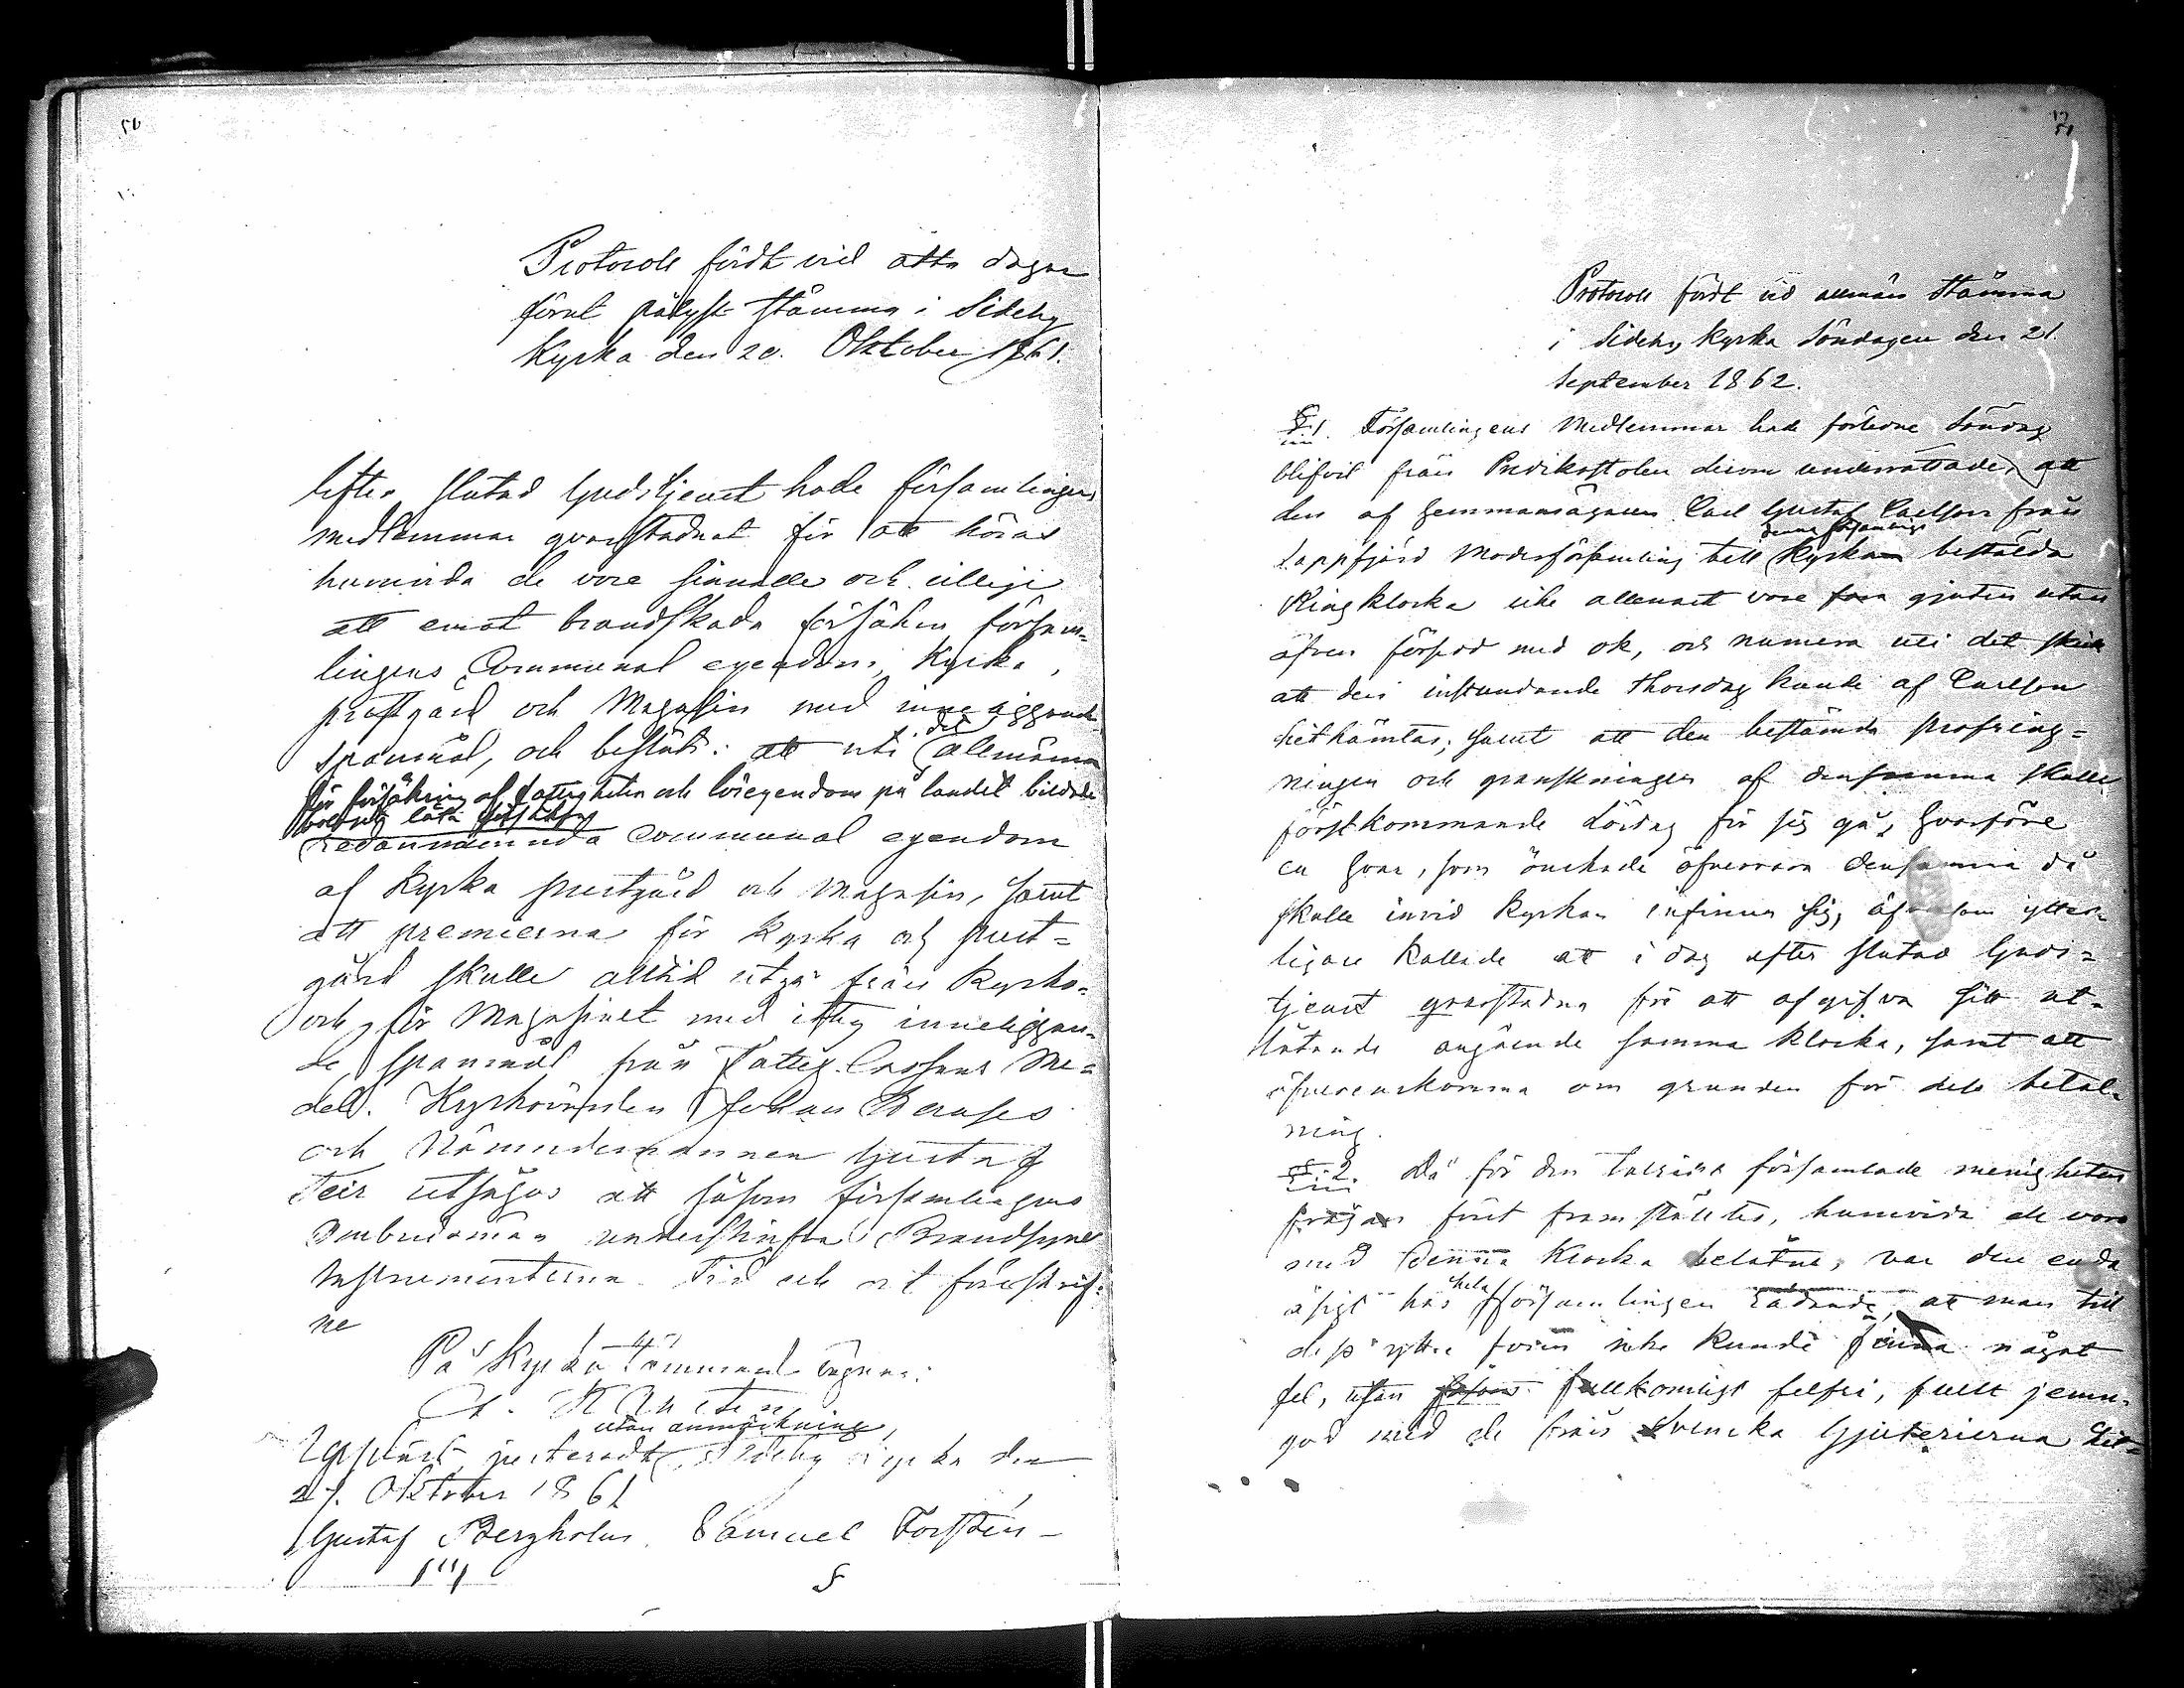 50
Protocoll fördt vid åtta dagar
förut pålyst stämma i Sideby
Kyrka den 20. Oktober 1861.
Efter slutad Gudstjenst hade församlingens
medlemmar qvarstadnat för att höras
huruvida de vore sinnade och villige
att emot brandskada försäkra försam-
lingens Communal egendom, Kyrka,
prestgård och Magasin med inneliggande
spanmål, och beslöts: att uti det allmänna
för försäkring af fastigheter och lösegendom på landet bildade
bolaget låta försäkra
redannämnda Communal egendom
af Kyrka prestgård och Magasin, samt
att premierna för Kyrka och prest-
gård skulle alltid utgå från Kyrko-
och för Magasinet med i inneliggan-
de spanmål från Fattig Cassans Me-
del. Kyrkovärden Johan
och Nämndemannen Gustaf
Teir utsågos att såsom församlingens
Ombudsmän underskrifva Brandsyns
Instrumenterna. Tid och ort föreskrif-
ne
På Kyrko vägnar:
utan anmärkning,
Uppläst, justeradt i Sideby Kyrka den
27. Oktober 1861
Gustaf Bergholm. Samuel Forstén
51
Protocoll fördt vid allmän Stämma
i Sideby Kyrka Söndagen den 21.
September 1862.
§ 1. Församlingens Medlemmar hade förledne Söndag
blifvit från Predikstolen derom underrättade, att
den af Hemmansägaren Carl Gustaf Carlson från
Lappfjärd Moderförsamling till denna församlings Kyrka beställda
Ringklocka icke allenast vore gjuten utan
äfven försedd med ok, och numera uti det skick
att den instundande Thorsdag kunde af Carlson
hithämtas; samt att den bestämda profring-
ningen och granskningen af densamma skulle
förstkommande Lördag för sig gå, hvarföre
en hvar, som önskade öfvervara densamma då
skulle invid Kyrkan infinna sig, äfvensom ytter-
ligare kallade att i dag efter slutad Guds-
tjenst qvarstadna för att afgifva sitt ut-
låtande angående samma klocka, samt att
öfverenskomma om grunden för dess betal-
ning.
§ 2. Då för den talrika församlade menigheten
frågan först framställtes, huruvida de voro
med denna Klocka belåtne, var den enda
åsigt hos hela församlingen rådande, att man till
dess yttre form icke kunde finna något
fel, utan fullkomligt felfri, fullt jemn-
god med de från Svenska Gjuterierna hit-